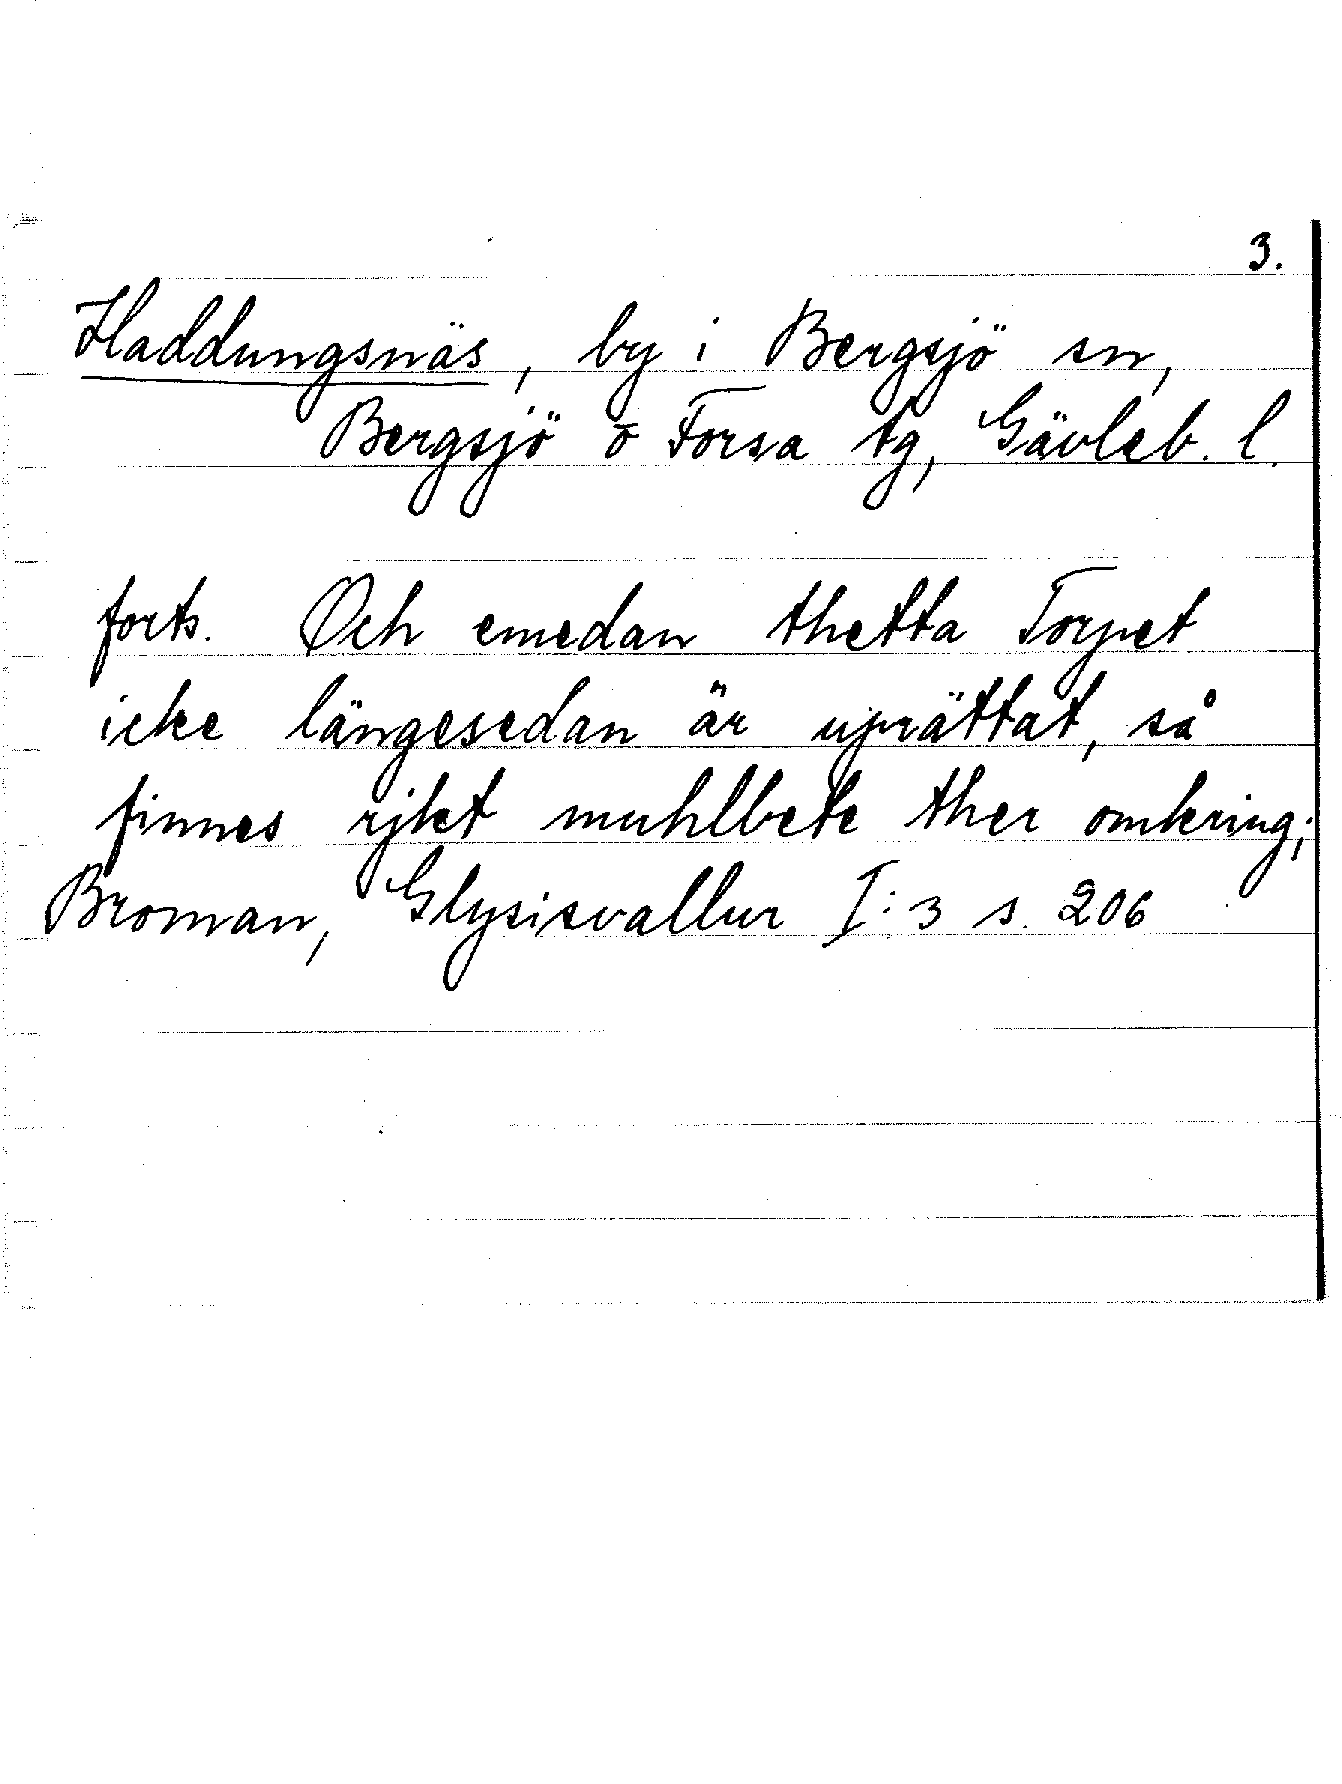 3.
Haddungsnäs, by i Bergsjö sn,
Bergsjö o Forsa tg, Gävleb. l.
forts. Och emedan thetta Torpet
icke längesedan är uprättat, så
finnes rjket muhlbete ther omkring;
Broman, Glysisvallur I:3 s. 206